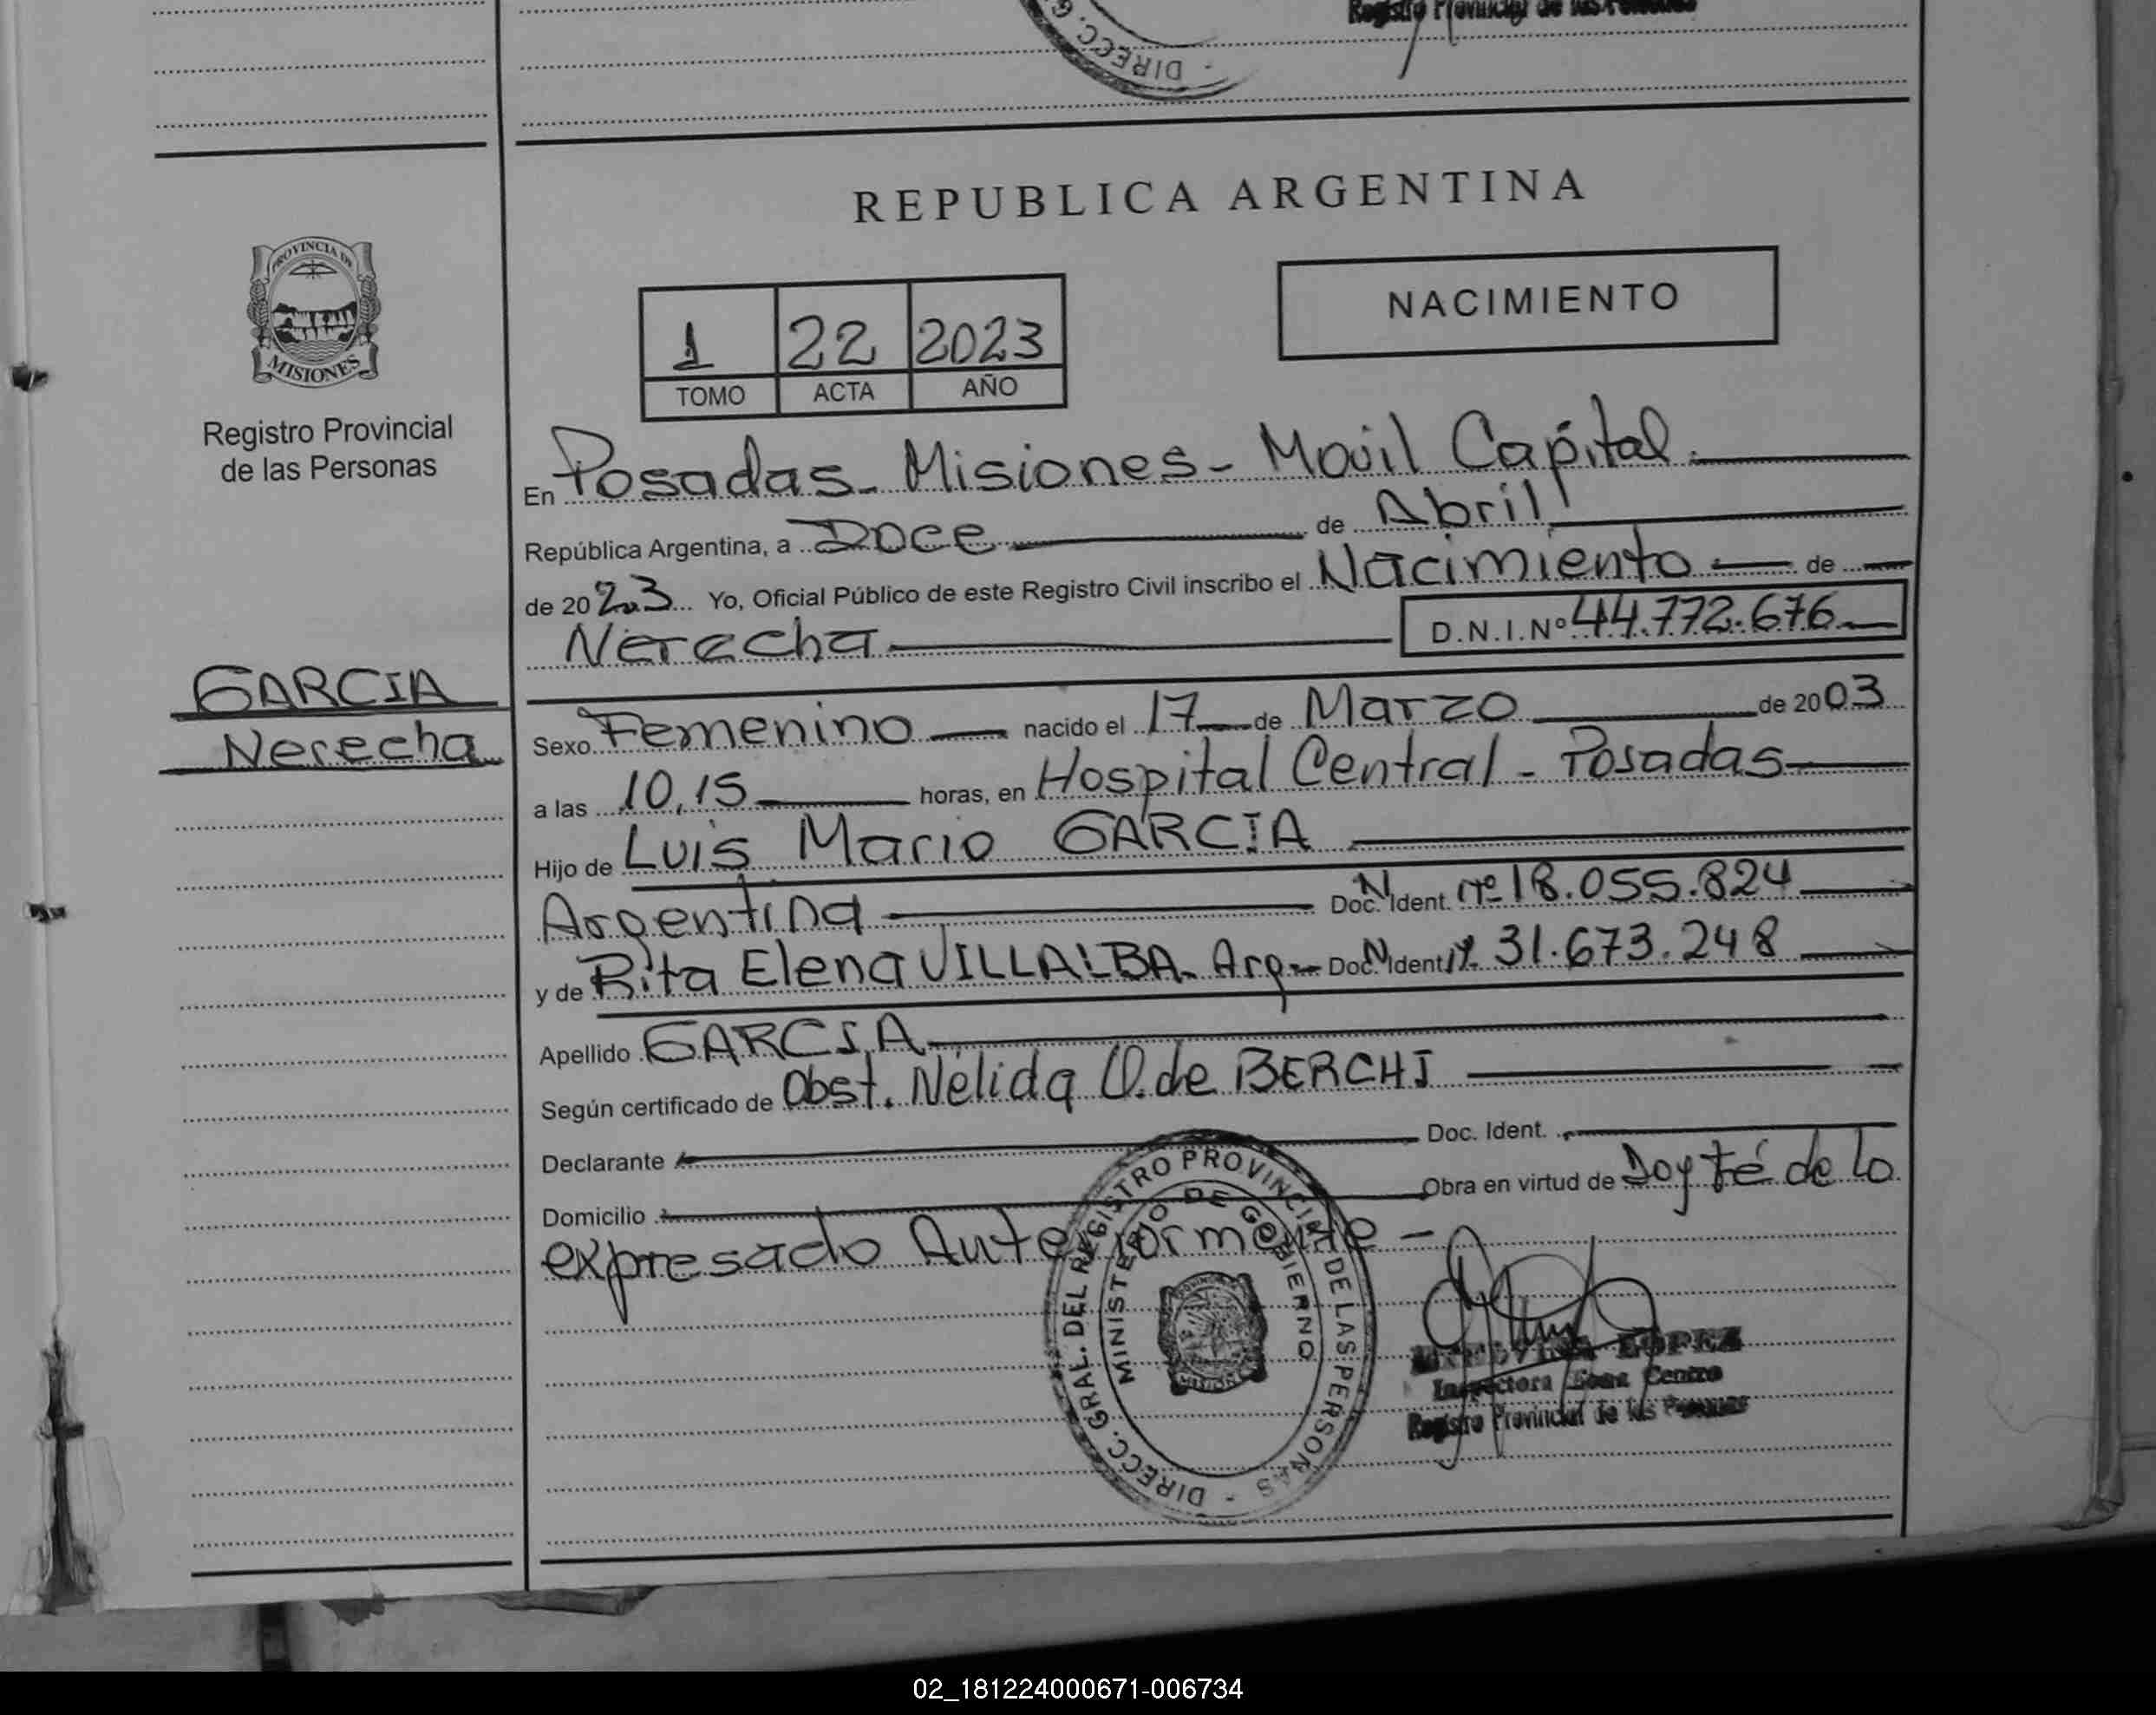 Registro Provincial de las Personas
DIRECC. G
REPUBLICA ARGENTINA
NACIMIENTO
1 22 2023
TOMO ACTA AÑO
PROVINCIA DE
MISIONES
Registro Provincial
de las Personas
GARCIA
Nerecha
En Posadas - Misiones - Movil Capital.
República Argentina, a Doce de Abril
de 2023 Yo, Oficial Público de este Registro Civil inscribo el Nacimiento de
Nerecha D.N.I.Nº 44.772.676
Sexo Femenino nacido el 17 de Marzo de 2003
a las 10,15 horas, en Hospital Central - Posadas
Hijo de Luis Mario GARCIA
Argentina Doc. N. Ident. Nº 18.055.824
y de Rita Elena VILLALBA - Arg - Doc. N. Ident. 31.673.248
Apellido GARCIA
Según certificado de Obst. Nélida O. de BERCHI
Declarante Doc. Ident.
Domicilio Obra en virtud de Doy fé de lo
expresado Anteriormente -
DIRECC. GRAL. DEL REGISTRO PROVINCIAL DE LAS PERSONAS -
MINISTERIO DE GOBIERNO
LOPEZ
Inspectora Zona Centro
Registro Provincial de las Personas
02_181224000671-006734